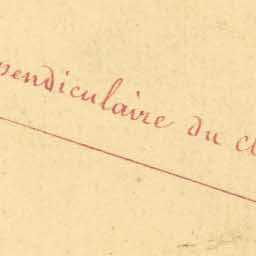 pendiculaire du c